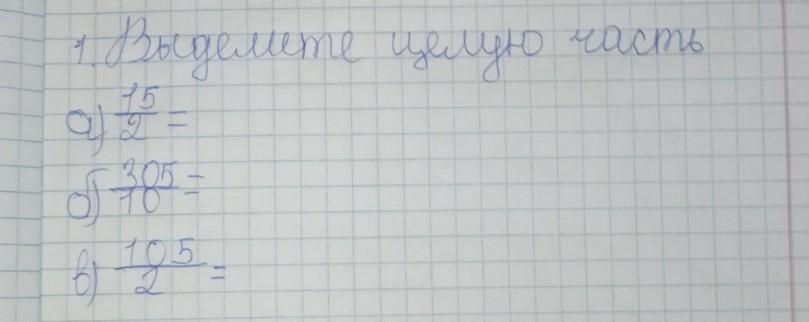 1. Выделите целую часть
а) 15/2 =
б) 305/10 =
в) 105/2 =